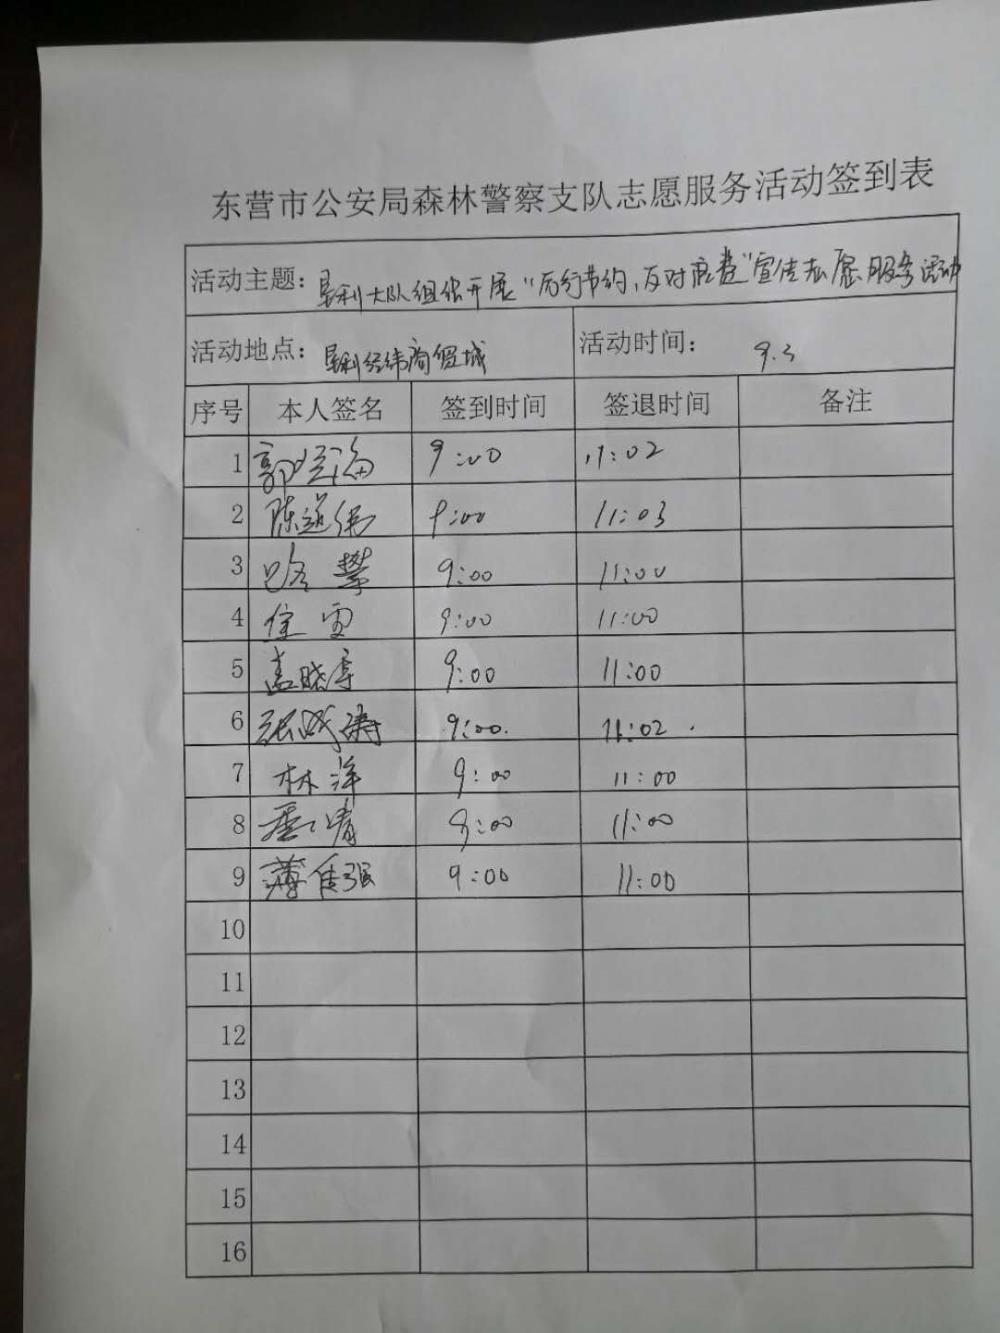 东营市公安局森林警察支队志愿服务活动签到表
活动主题：垦利大队组织开展“厉行节约，反对浪费”宣传志愿服务活动
活动地点：垦利经纬商贸城 活动时间：9.3
序号 本人签名 签到时间 签退时间 备注
1 9:00 11:02
2 陈道伟 9:00 11:03
3 攀 9:00 11:00
4 雷 9:00 11:00
5 孟晓亭 9:00 11:00
6 张 涛 9:00. 11:02.
7 林洋 9:00 11:00
8 9:00 11:00
9 薄佳强 9:00 11:00
10
11
12
13
14
15
16